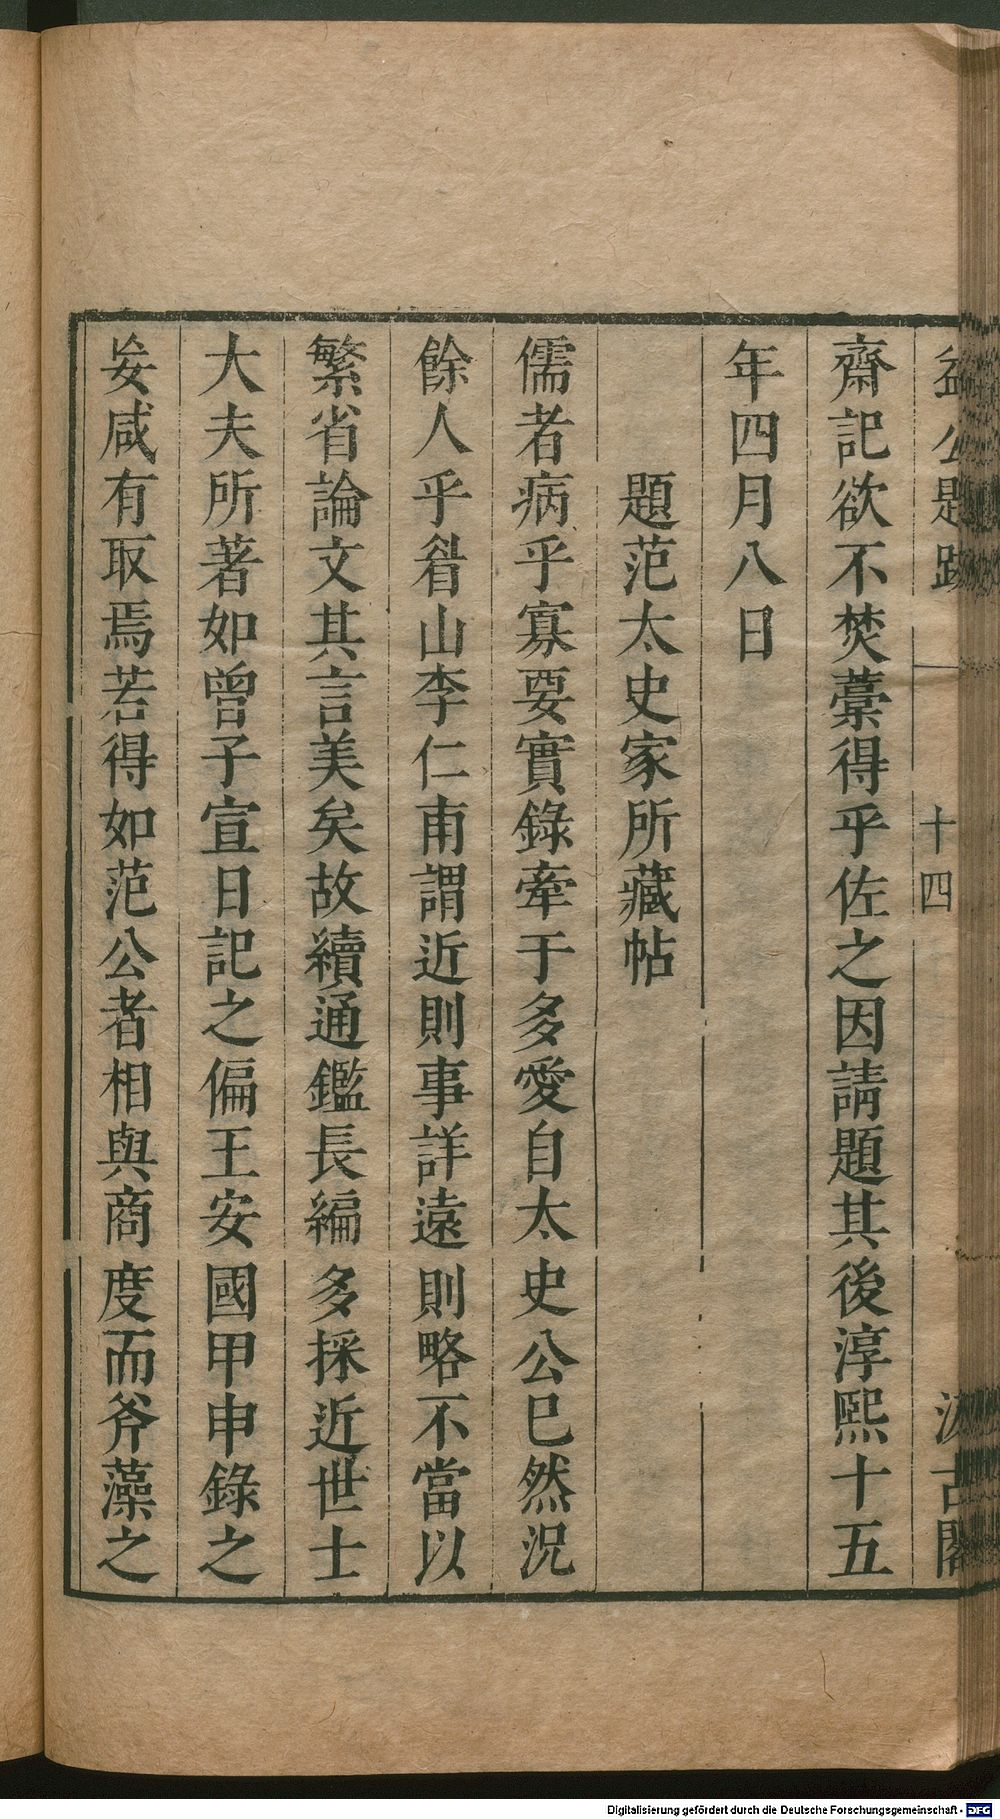 益公題跋 十四 汲古閣
齋記欲不焚藁得乎佐之因請題其後淳熙十五
年四月八日
題范太史家所藏帖
儒者病乎寡要實錄牽于多愛自太史公已然況
餘人乎眷山李仁甫謂近則事詳遠則略不當以
繁省論文其言美矣故續通鑑長編多採近世士
大夫所著如曾子宣日記之偏王安國甲申錄之
妄咸有取焉若得如范公者相與商度而斧藻之
Digitalisierung gefördert durch die Deutsche Forschungsgemeinschaft - DFG